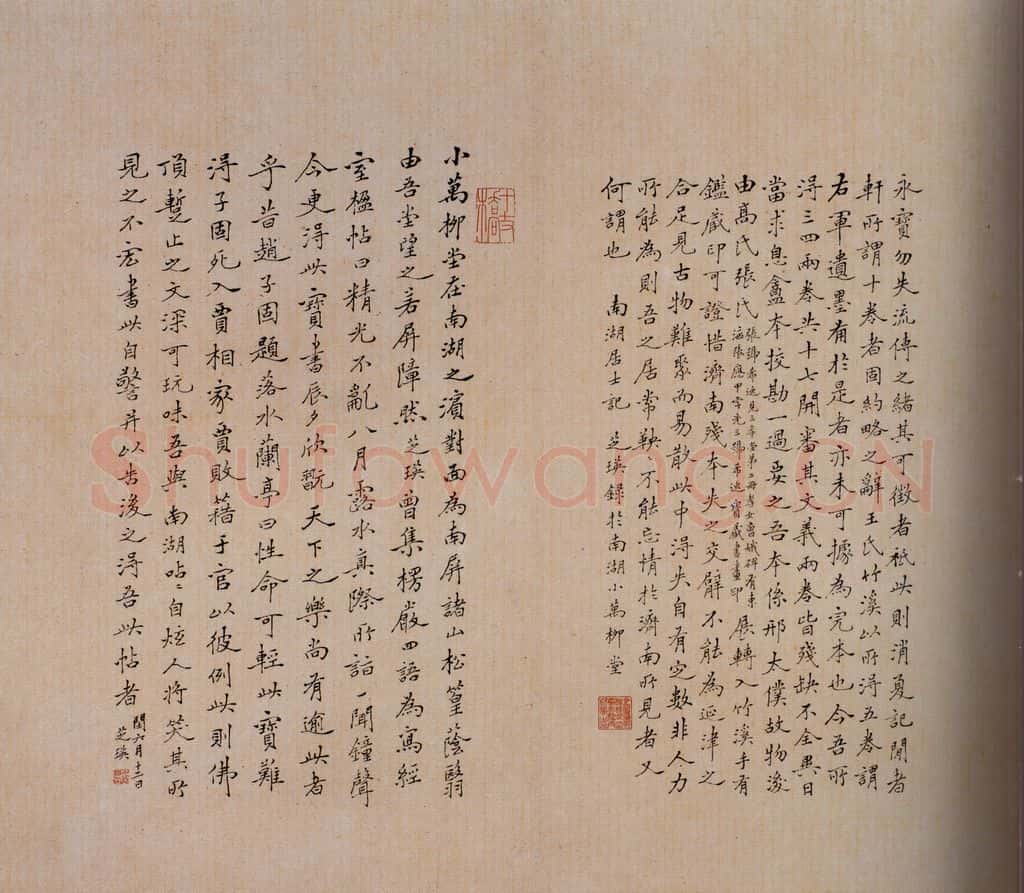 永寶勿失流傳之緒其可徵者秖此則消夏記聞者
軒所謂十卷者固約略之辭王氏竹溪以所得五卷謂
右軍遺墨備於是者亦未可據為完本也今吾所
得三四兩卷共十七開審其文義兩卷皆殘缺不全異日
當求息盦本挍勘一過妥之吾本係邢太僕故物後
由高氏張氏
張號希逸見三本卷第二冊孝女曹娥碑有東
海張應甲字先三號希逸寶藏書畫印
展轉入竹溪手有
鑑藏印可證惜濟南殘本失之交臂不能為延津之
合足見古物難聚而易散此中得失自有定數非人力
所能為則吾之居常鞅鞅不能忘情於濟南所見者又
何謂也 南湖居士記 芝瑛錄於南湖小萬柳堂
小萬柳堂在南湖之濱對面為南屏諸山松篁蔭翳
由吾堂望之若屏障然芝瑛曾集楞嚴四語為寫經
室楹帖曰精光不亂八月露水真際所詣一聞鐘聲
今更得此寶書辰夕欣翫天下之樂尚有逾此者
乎昔趙子固題落水蘭亭曰性命可輕此寶難
得子固死入賈相家賈敗籍于官以彼例此則佛
頂暫止之文深可玩味吾與南湖呫呫自炫人將笑其所
見之不宏書此自警并以告後之得吾此帖者
閏六月十三日
芝瑛
Shufawang.CN